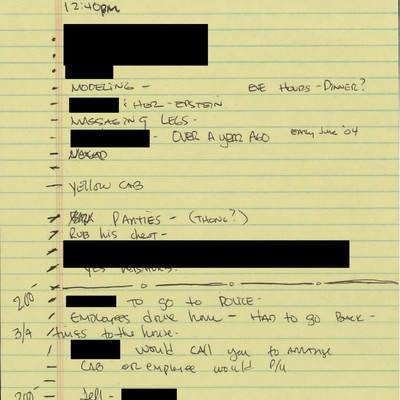 12:40pm
MODELING - EVE HOURS - DINNER?
& HER - EPSTEIN
MASSAGING LEGS -
- OVER A YEAR AGO EARLY JUNE '04
YELLOW CAB
PARTIES - (THONG?)
RUB his chest -
200 TO GO TO POLICE -
EMPLOYEES drive home - HAD TO GO BACK -
3/4 times to the house.
would CALL you to ARRANGE
CAB OR employee would P/U
200